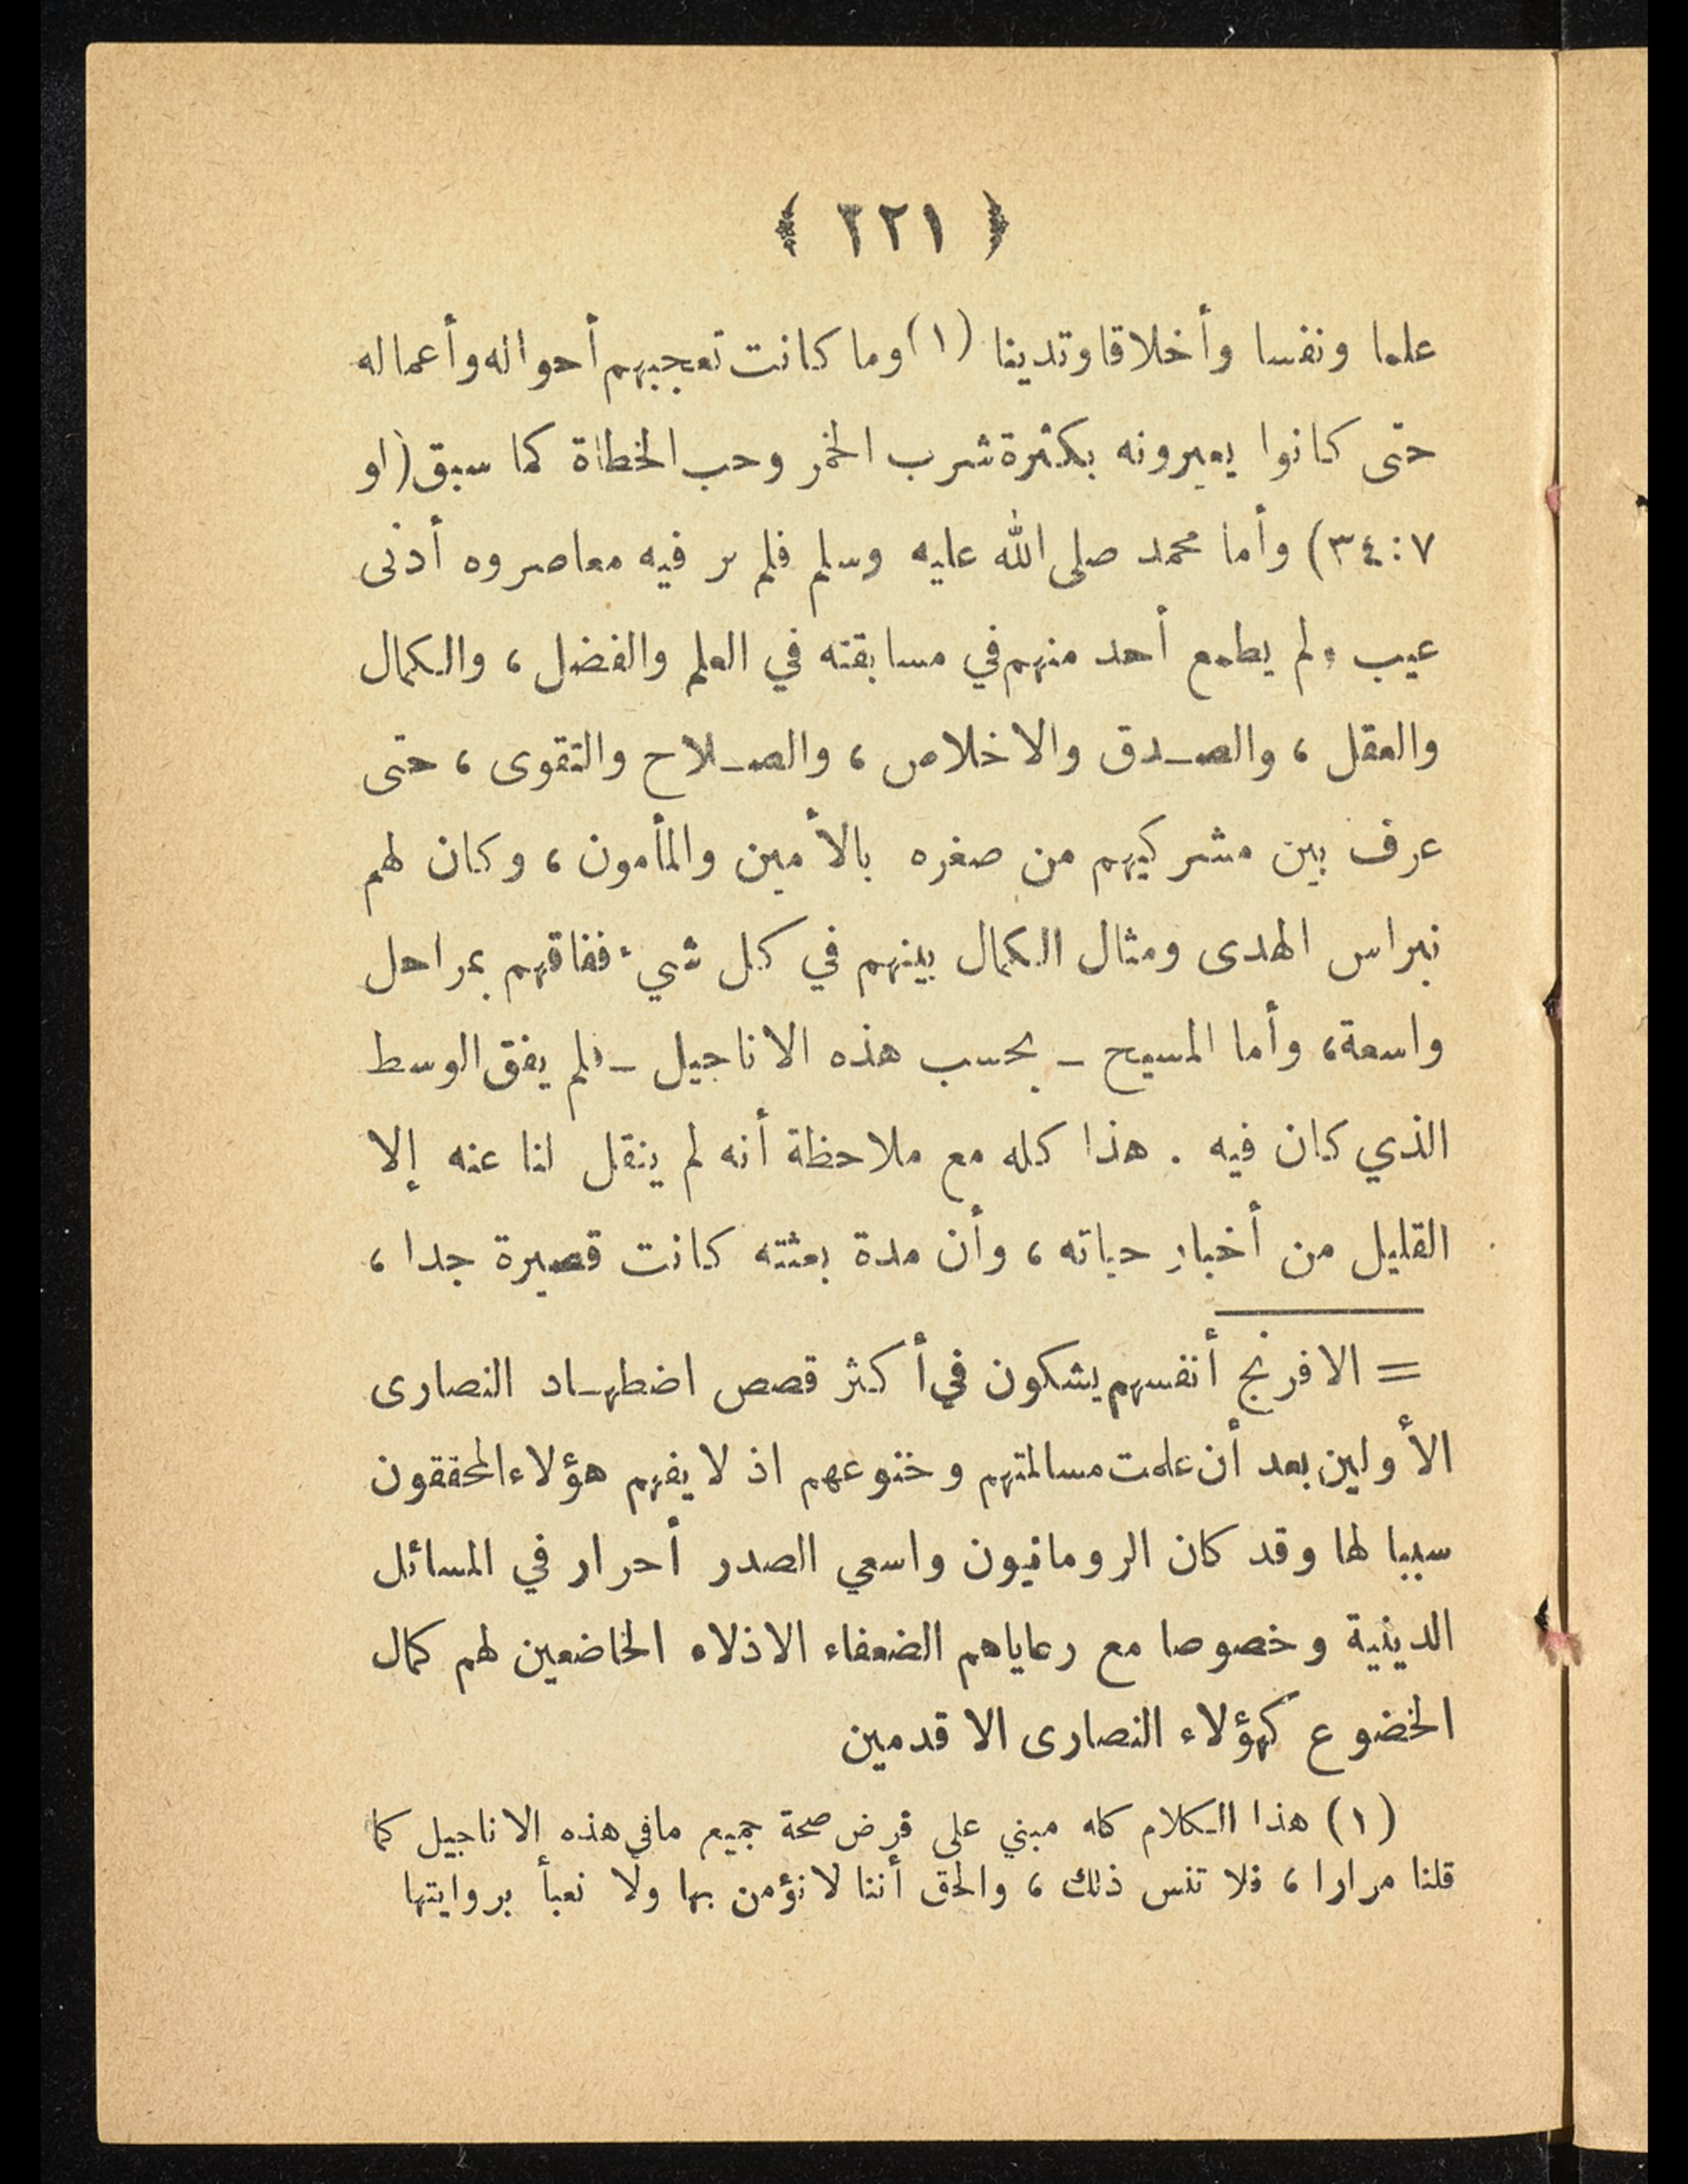 ﴿ ٢٢١ ﴾
علما ونفسا وأخلاقا وتدينا (١) وما كانت تعجبهم أحواله وأعماله
حتى كانوا يعيرونه بكثرة شرب الخمر وحب الخطاة كما سبق (لو
٧ : ٣٤) وأما محمد صلى الله عليه وسلم فلم ير فيه معاصروه أدنى
عيب ولم يطمع أحد منهم في مسابقته في العلم والفضل ، والكمال
والعقل ، والصـدق والاخلاص ، والصـلاح والتقوى ، حتى
عرف بين مشركيهم من صغره بالأمين والمأمون ، وكان لهم
نبراس الهدى ومثال الكمال بينهم في كل شيء ففاقهم بمراحل
واسعة ، وأما المسيح ـ بحسب هذه الاناجيل ـ فلم يفق الوسط
الذي كان فيه . هذا كله مع ملاحظة أنه لم ينقل لنا عنه إلا
القليل من أخبار حياته ، وأن مدة بعثته كانت قصيرة جدا ،
= الافرنج أنفسهم يشكون في أكثر قصص اضطهـاد النصارى
الأولين بعد أن علمت مسالمتهم وخنوعهم اذ لا يفهم هؤلاء المحققون
سببا لها وقد كان الرومانيون واسعي الصدر أحرار في المسائل
الدينية وخصوصا مع رعاياهم الضعفاء الاذلاء الخاضعين لهم كمال
الخضوع كهؤلاء النصارى الاقدمين
(١) هذا الكلام كله مبني على فرض صحة جميع مافي هذه الاناجيل كما
قلنا مرارا ، فلا تنس ذلك ، والحق أننا لا نؤمن بها ولا نعبأ بروايتها